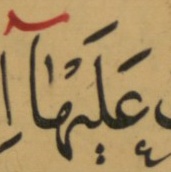 عَلَيْهَآ